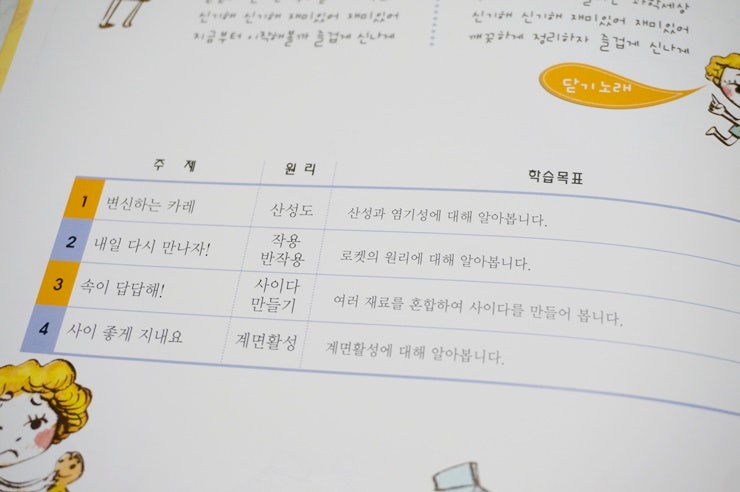 신기해 신기해 재미있어 재미있어
지금부터 시작해볼까 즐겁게 신나게
과학세상
신기해 신기해 재미있어 재미있어
깨끗하게 정리하자 즐겁게 신나게
닫기노래
주 제 원 리 학습목표
1 변신하는 카레 산성도 산성과 염기성에 대해 알아봅니다.
2 내일 다시 만나자! 작용 반작용 로켓의 원리에 대해 알아봅니다.
3 속이 답답해! 사이다 만들기 여러 재료를 혼합하여 사이다를 만들어 봅니다.
4 사이 좋게 지내요 계면활성 계면활성에 대해 알아봅니다.